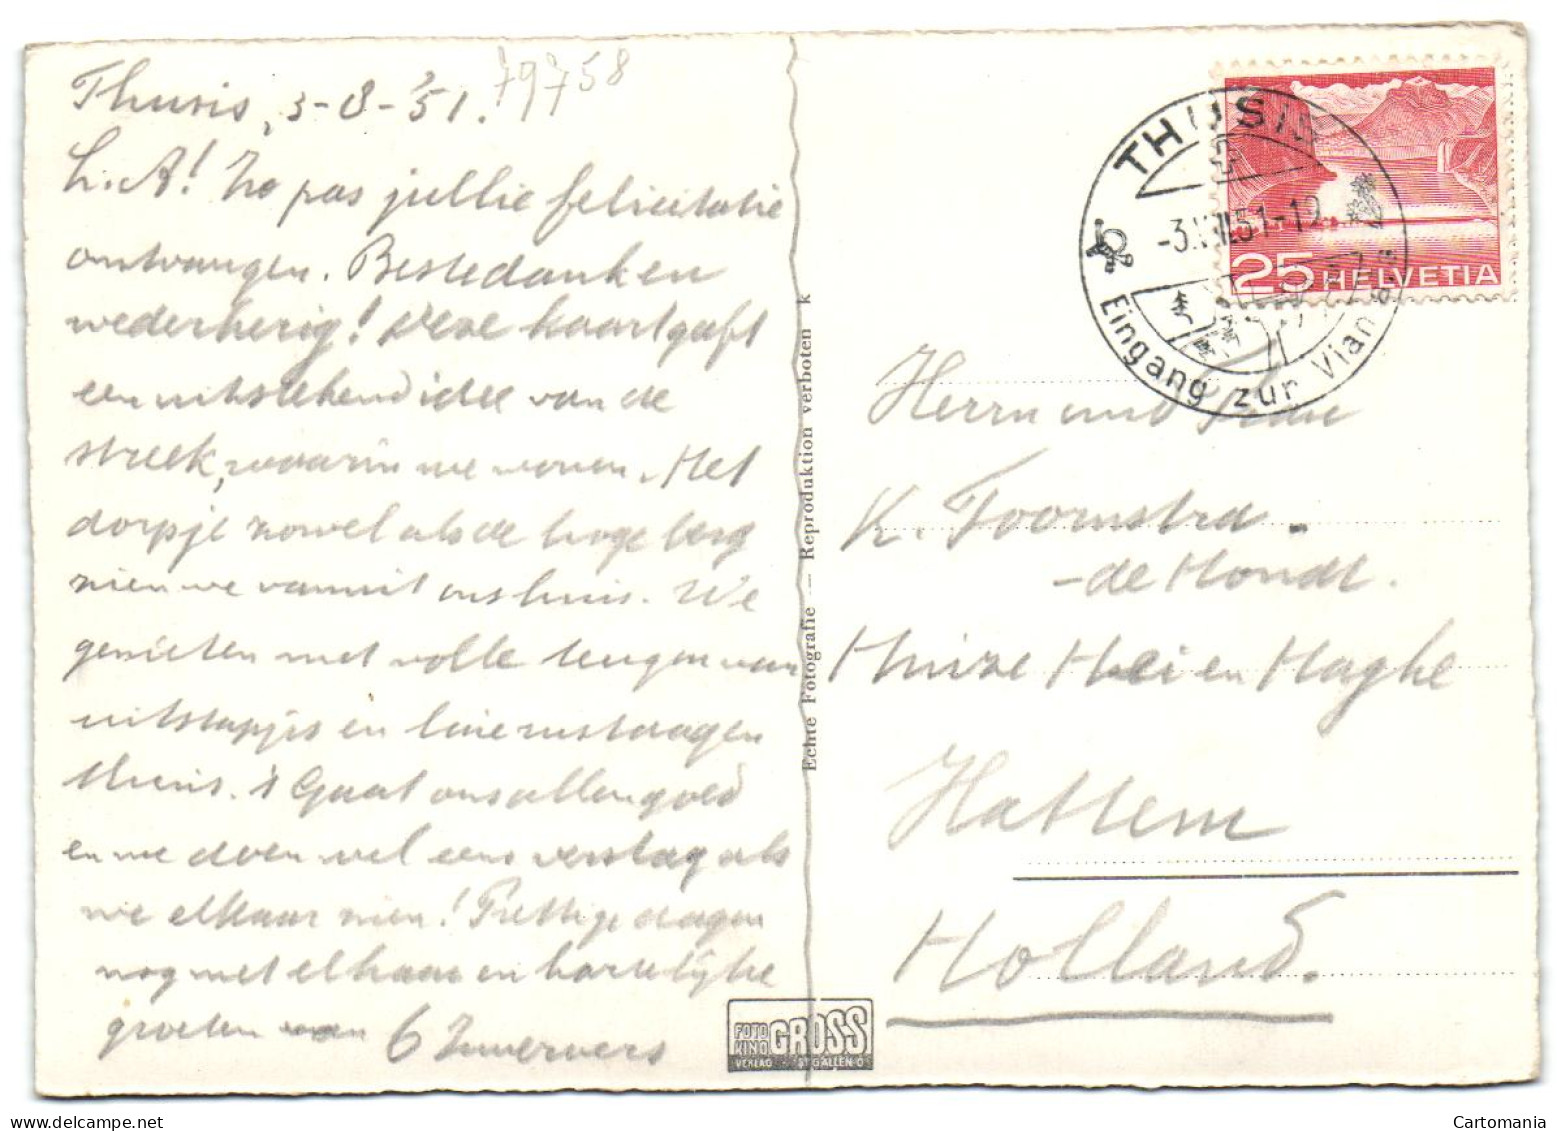 Thusis, 3-8-'51.
79758
L.A! Zo pas jullie felicitatie
ontvangen. Beste dank en
wederkerig! Deze kaart geeft
een uitstekend idee van de
streek, waarin we wonen. Het
dorpje zowel als de hoge berg
zien we vanuit ons huis. We
genieten met volle teugen van
uitstapjes en luie rustdagen
thuis. 't Gaat ons allen goed
en we doen wel eens verslag als
we elkaar zien! Prettige dagen
nog met elkaar en hartelijke
groeten van 6
Echte Fotografie — Reproduktion verboten k
FOTO KINO GROSS
VERLAG ST. GALLEN O
THUSIS
-3.VIII.51-12
Eingang zur Viamala
25 HELVETIA
Herrn und Frau
K. Toornstra -
- de Hondt.
Huize Hei en Haghe
Hattem
Holland.
Cartomania
www.delcampe.net